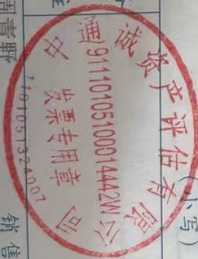 中通诚资产评估有限公司
91110105100014442W
发票专用章
1101051324007
(小写)
销售